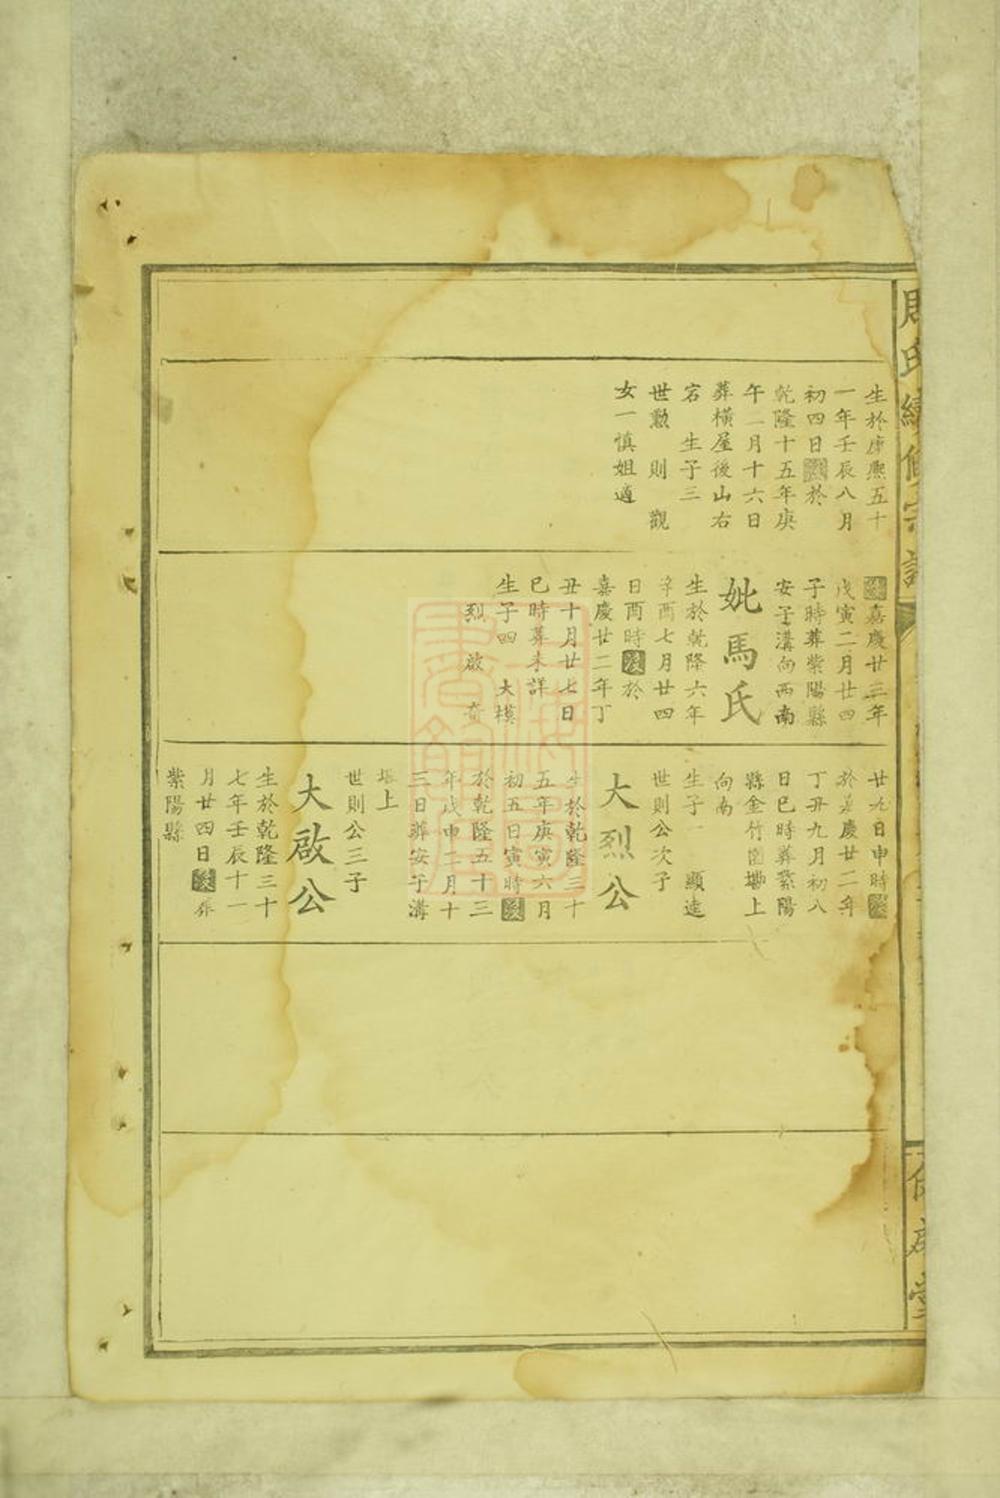 周氏續修宗譜
生於康熙五十
一年壬辰八月
初四日歿於
乾隆十五年庚
午二月十六日
葬橫屋後山右
宕 生子三
世勳 則 觀
女一慎姐適
歿嘉慶廿三年
戊寅二月廿四
子時葬紫陽縣
安子溝向西南
妣馬氏
生於乾隆六年
辛酉七月廿四
日酉時歿於
嘉慶廿二年丁
丑十月廿七日
巳時葬未詳
生子四 大模
烈 啟 奇
廿九日申時歿
於嘉慶廿二年
丁丑九月初八
日巳時葬紫陽
縣金竹園塝上
向南
生子一 顯達
世則公次子
大烈公
生於乾隆三十
五年庚寅六月
初五日寅時歿
於乾隆五十三
年戊申二月十
三日葬安子溝
塝上
世則公三子
大啟公
生於乾隆三十
七年壬辰十一
月廿四日歿葬
紫陽縣